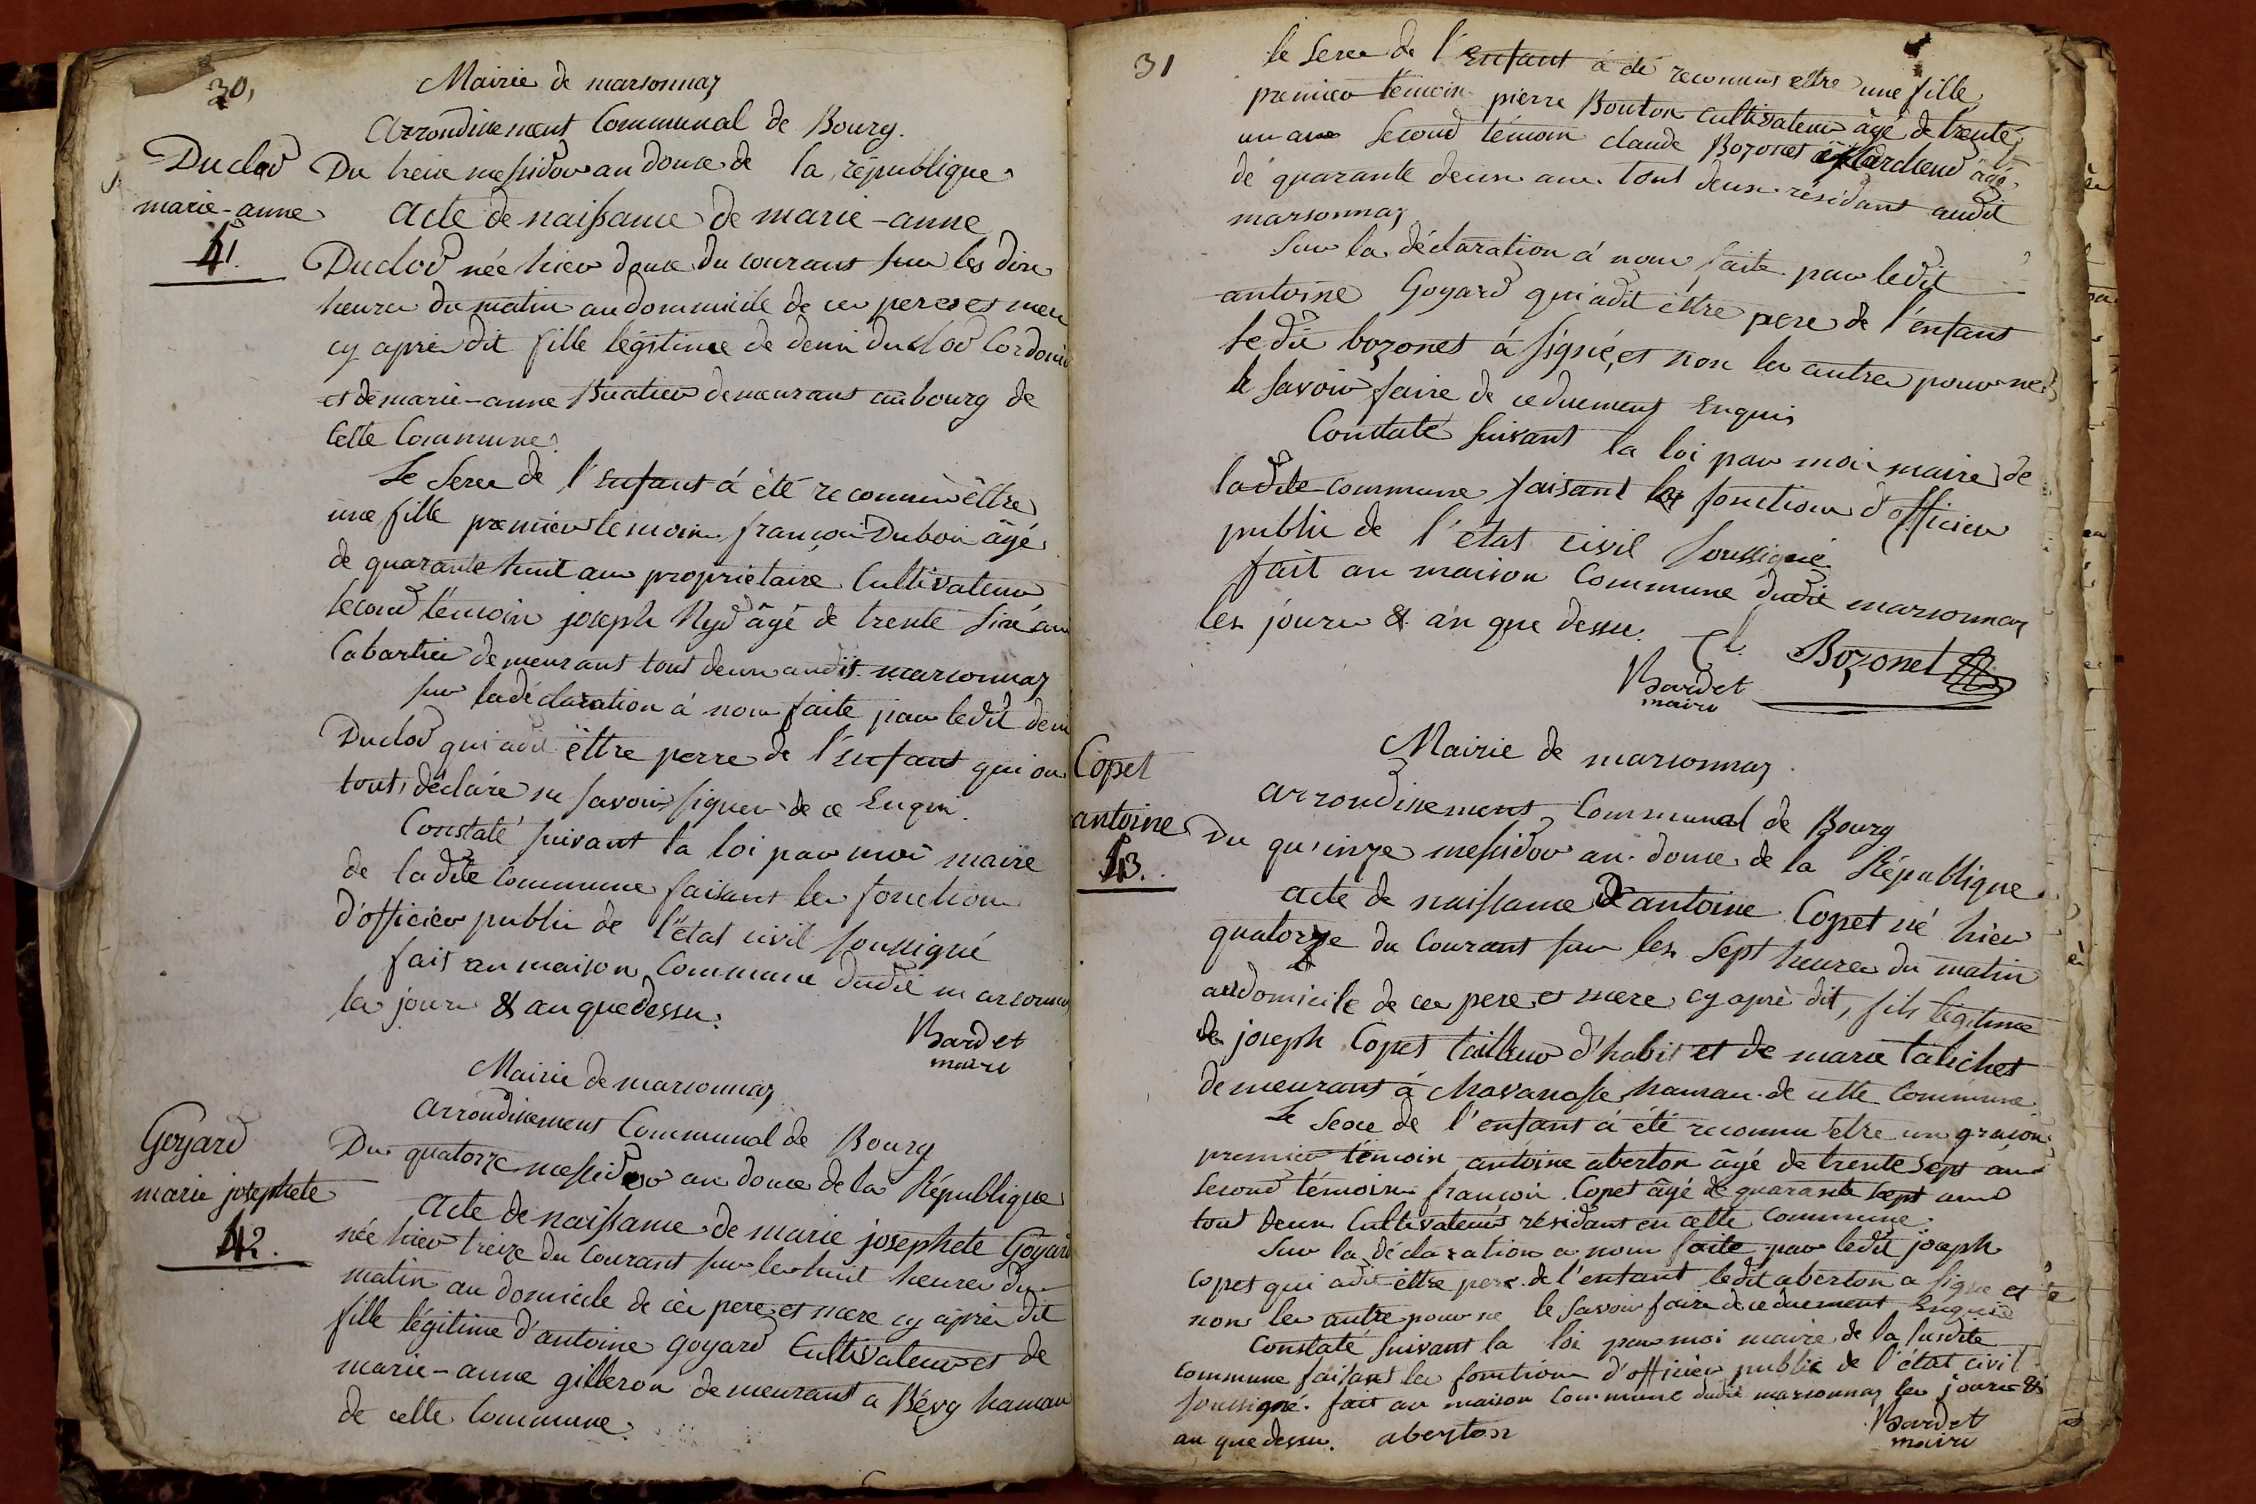 30,
Mairie de marsonnaz
Arrondissement Communal de Bourg.
Duclod
marie-anne
41.
Du treize messidor an douze de la république
acte de naissance de marie-anne
Duclod née hier douze du courant sur les dix
heures du matin au dommicile de ces peres et mere
cy après dit fille légitime de denis duclod Cordonier
et de marie-anne Buatier demeurant au bourg de
cette Commune.
Le Sexe de l'enfant à été reconnu êttre
une fille premier temoin françois Dubois âgé
de quarante huit ans propriétaire Cultivateur
second témoin joseph Nyd âgé de trente six ans
Cabartier demeurant tout deux audit marsonnaz
sur la déclaration à nous faite par ledit denis
Duclod qui a dit êttre perre de l'enfant qui on
tout déclaré ne savoir signer de ce Enquis.
Constaté suivant la loi par moi maire
de ladite Commune faisant les fonctions
d'officier public de l'état civil soussigné
fait en maison Commune dudit marsonnaz
les jours & an que dessus.
Bardet
maire
Mairie de marsonnaz
arrondissement Communal de Bourg
Goyard
marie josephete
42.
Du quatorze messidor an douze de la République
Acte de naissance de marie josephete Goyard
née hier treize du courant sur les huit heures du
matin au domicile de ces pere et mere cy après dit
fille légitime d'antoine goyard Cultivateur et de
marie-anne gilleron demeurant a Bévy hamau
de cette Commune.
31
le Sexe de l'Enfant à été reconnus ettre une fille,
premier témoin pierre Bouton Cultivateur âgé de trente
un ans second témoin claude Bozonet Marchend âgé
de quarante deux ans tout deux résidant audit
marsonnaz
Sur la déclaration à nous faite par ledit
antoine Goyard qui a dit êttre pere de l'enfant
ledit bozonet à signé, et non les autres pour ne
le savoir faire de ce duement Enquis
Constaté suivant la loi par moi maire de
ladite commune faisant les fonctions d'officier
public de l'état civil soussigné
fait an maison Commune dudit marsonnaz
les jours & an que dessus.
Cl. Bozonet
Bardet
maire
Mairie de marsonnaz
arrondissement Communal de Bourg
Copet
antoine
43.
Du quinze messidor an douze de la République
acte de naissance d'antoine Copet né hier
quatorze du Courant sur les Sept heures du matin
au domicile de ces pere et mere cy après dit, fils légitime
de joseph Copet tailleur d'habit et de marie talichet
demeurant à chavanosse hamau de cette Commune.
Le Sexe de l'enfant à été reconnu être un grason
premier témoin antoine aberton âgé de trente sept ans
second témoin françois Copet âgé de quarante sept ans
tout deux Cultivateurs résidant en cette commune.
Sur la déclaration a nous faite par ledit joseph
Copet qui a dit êttre pere de l'enfant ledit aberton a signe et
non les autre pour ne le savoir faire de ce duement Enquis
Constaté suivant la loi par moi maire de la susdite
Commune faisant les fonctions d'officier public de l'état civil
soussigné. fait au maison Commune dudit marsonnaz les jours &
an que dessus. aberton
Bardet
maire